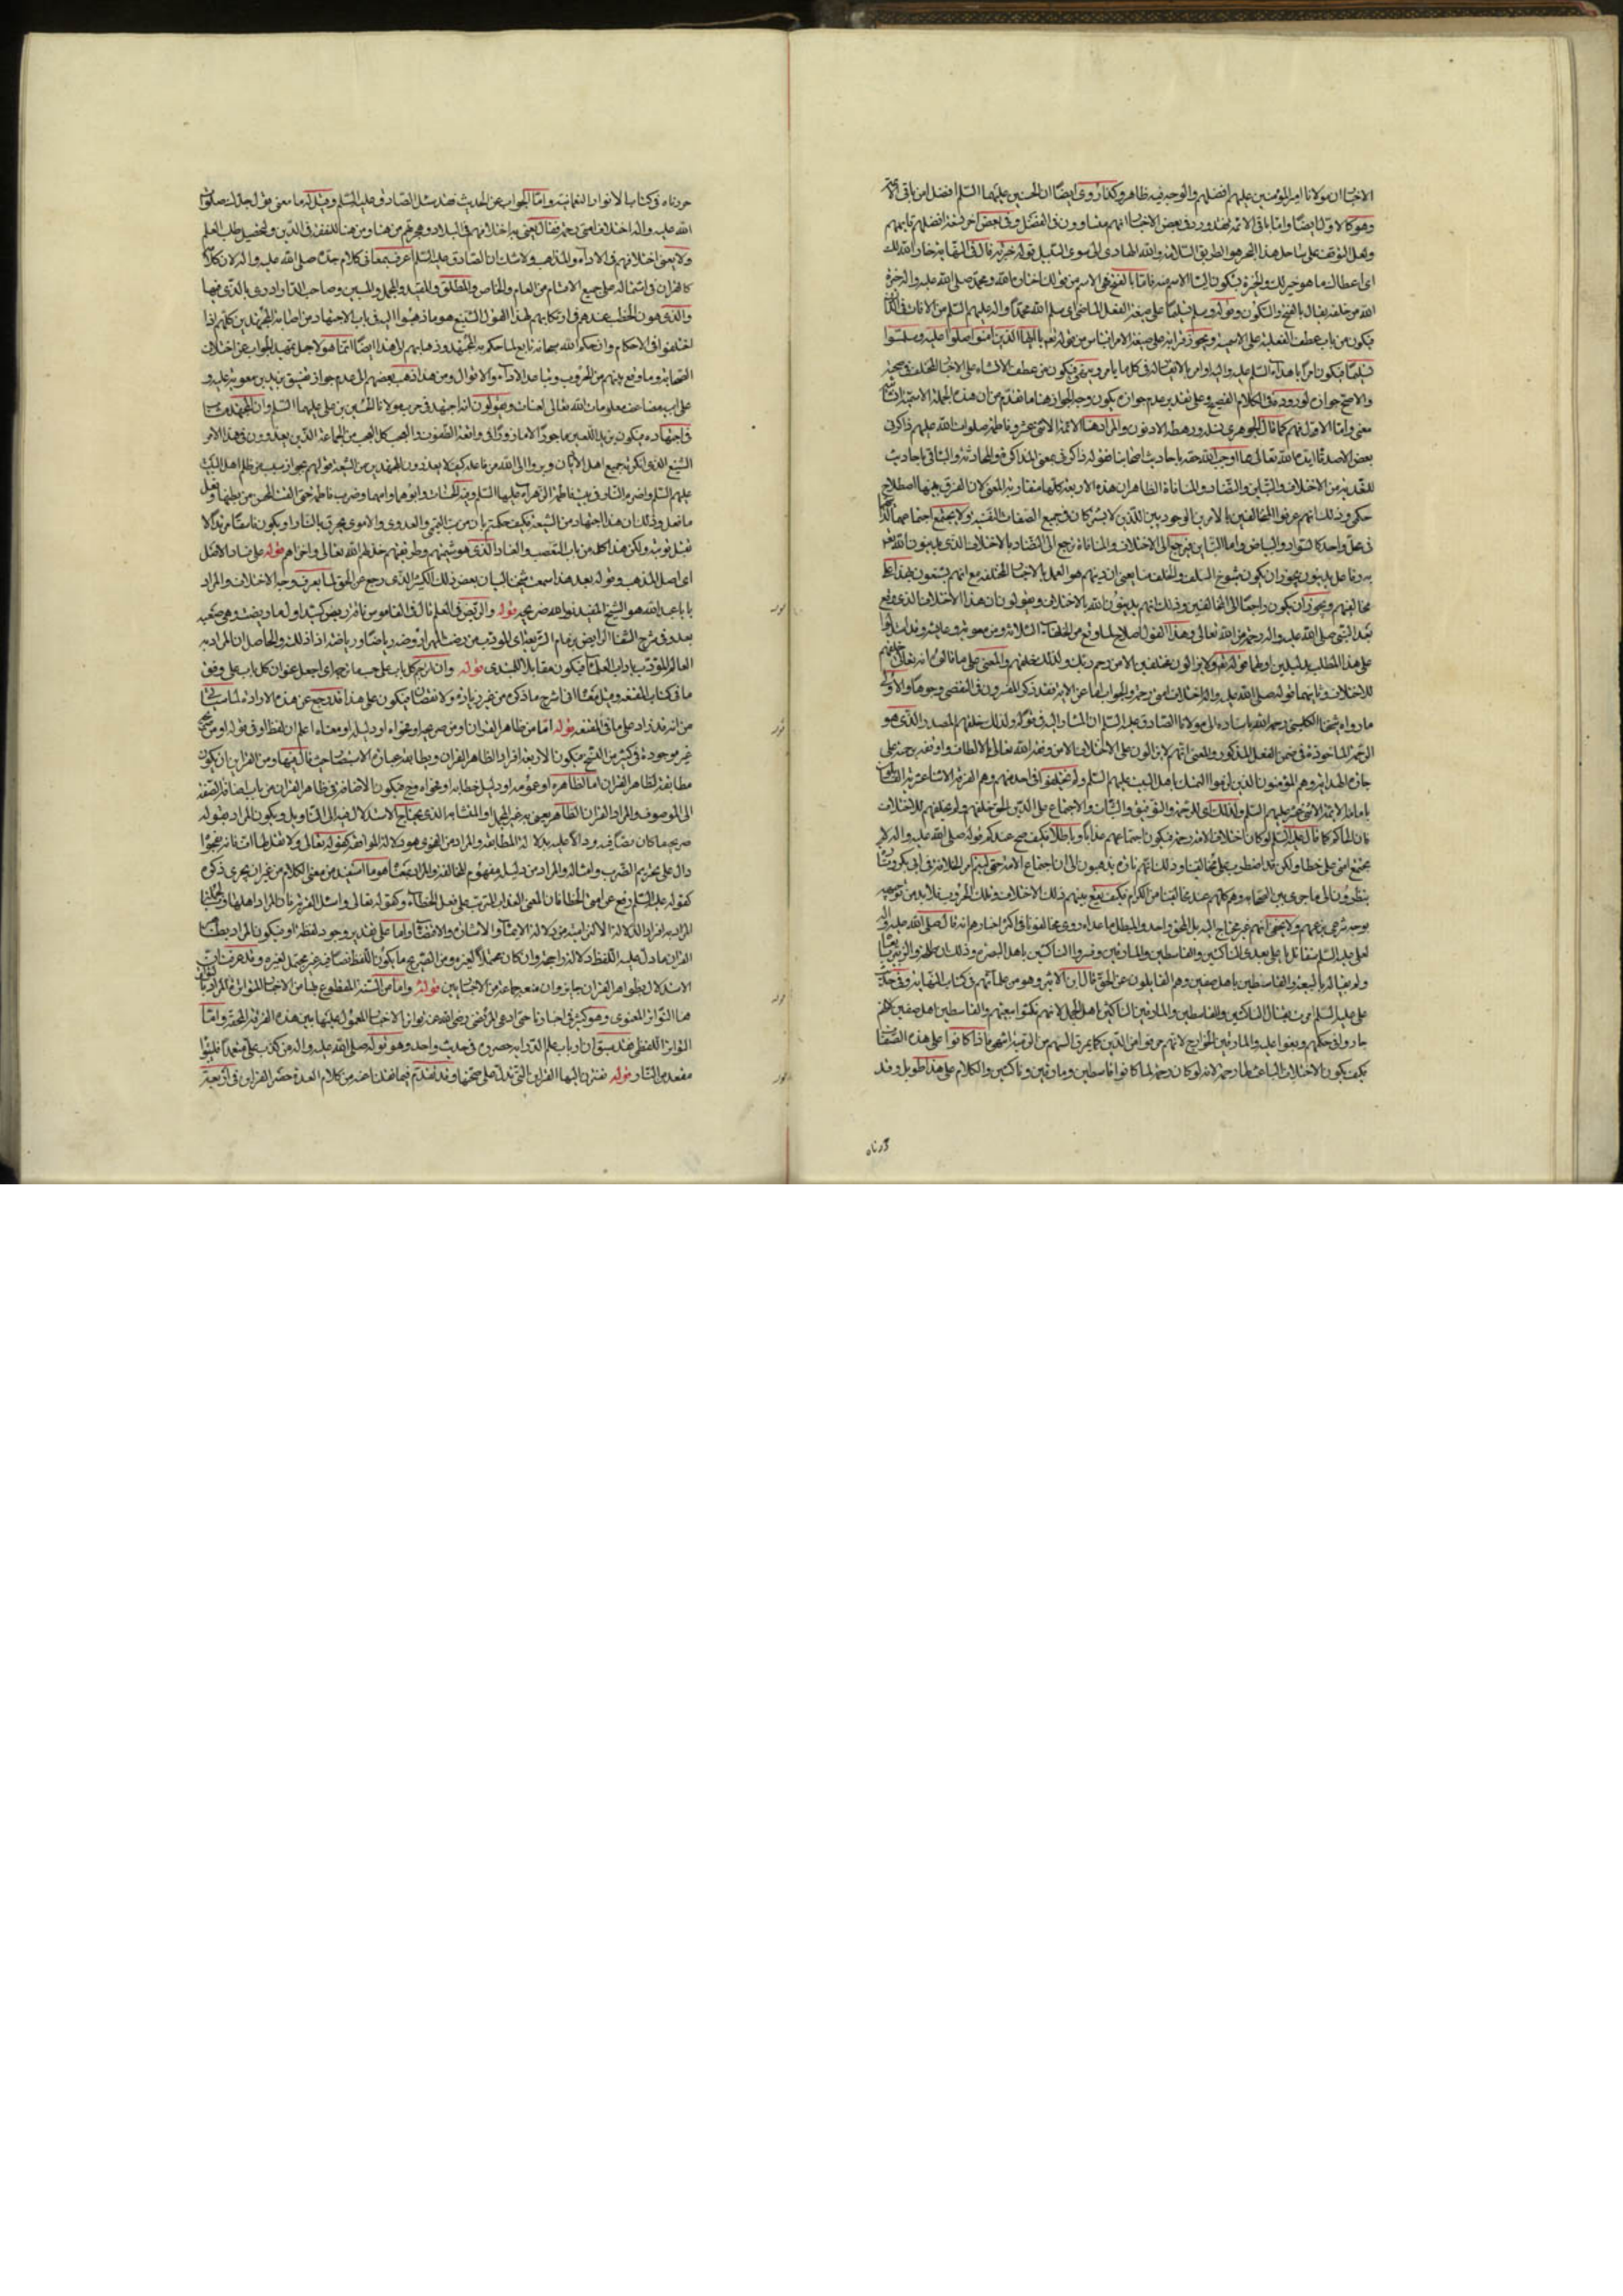 الاخبار ان مولانا امير المؤمنين عليهم افضلهم والوجه فيه ظاهر وكذا روى ايضا ان الحسنين عليهما السلم افضل من باقى الائمة
وهو كالاول ايضا واما باقى الائمة فقد ورد فى بعض الاخبار انهم متساوون فى الفضل وفى بعض اخر تسعة افضلهم قايمهم
ولعل التوقف على ساحل هذا البحر هو الطريق السلامة والله الهادى الى سوى السبيل قوله خيرته قال فى النهاية خار الله لك
اى اعطاك ما هو خير لك والخيرة بسكون اليا الاسم منه فاما بالفتح فهى الاسم من قولك اختاره الله ومحمد صلى الله عليه واله خيرة
الله من خلقه يقال بالفتح والسكون وقوله وسلم تسليما على صيغة الفعل الماضى اى سلم الله محمدا واله عليهم السلم من الافات
فيكون من باب عطف الفعلية على الاسمية ويجوز قرائته على صيغة الامر اقتباس من قوله تعالى يا ايها الذين امنوا صلوا عليه وسلموا
تسليما فيكون امرا باهداء السلم عليه واله او امر بالانقياد له فى كل ما يامر وينهى فيكون من عطف الانشاء على الاخبار المختلف فى صحته
والاصح جوازه لوروده فى الكلام الفصيح وعلى تقدير عدم جوازه يكون وجه الجواز هنا ما تقدم من ان هذه الجملة الاسمية انشائية
معنى واما الاقول فهم كما قال الجوهرى رهطه الادنون والمراد هنا الائمة الاثنى عشر وفاطمة صلوات الله عليهم ذاكرنى
بعض الاصدقا ايده الله تعالى مما اوجب الله حقه باحاديث اصحابنا فقوله ذاكرنى بمعنى المذاكرة والمحادثة والثانى باحاديث
من الاختلاف والتباين والتضاد والمنافاة الظاهر ان هذه الاربعة كلها متقاربة المعنى لان الفرق بينها اصطلاح
حكمى وذلك انهم عرفوا المتخالفين بالامرين الوجوديين اللذين لا يشتركان فى جميع الصفات النفسية ولا يمتنع اجتماعهما
فى محل واحد كالسواد والبياض واما التباين فيرجع الى الاختلاف والمنافاة ترجع الى التضاد بالاختلاف الذى يدينون الله
به وفاعل يدينون يجوز ان يكون شيوخ السلف والخلف منا يعنى ان دينهم هو العمل بالاخبار المختلفة مع انهم يشنعون بهذا على
مخالفيهم ويجوز ان يكون راجعا الى المخالفين وذلك انهم يدينون الله بالاختلاف ويقولون ان هذا الاختلاف الذى وقع
بعد النبى صلى الله عليه واله رحمة من الله تعالى وهذا القول اصلاح لما وقع من الخلفاء الثلاثة ومن معوية وعايشة وقد استدلوا
على هذا المطلب بدليلين اولهما قوله تعالى ولا يزالون مختلفين الا من رحم ربك ولذلك خلقهم والمعنى على ما قالوا انه تعالى خلقهم
للاختلاف وثانيهما قوله صلى الله عليه واله اختلاف امتى رحمة والجواب اما عن الاية فقد ذكر المفسرون فى التفصى وجوها والاولى
ما رواه شيخنا الكلينى رحمه الله باسناده الى مولانا الصادق عليه السلم ان المشار اليه فى قوله ولذلك خلقهم المصدر والذى هو
الرحمة الماخوذة فى ضمن الفعل المذكور والمعنى انهم لا يزالون على الاختلاف الا من وفقه الله تعالى بالالطاف واوقفه برحمته على
جادة الهداية وهم المؤمنون الذين لزموا التمسك باهل البيت عليهم السلم ولم يختلفوا فى احد منهم وهم الفرقة الاثنا عشرية القايلون
بامامة الائمة الاثنى عشر عليهم السلم ولذلك اى للرحمة والتوفيق والثبات والاجتماع على الدين الحق خلقهم ولم يخلقهم للاختلاف
فان لماكم كما قال عليه السلم لو كان اختلاف الامة رحمة فيكون اجتماعهم عذابا وباطلا فكيف صح عندكم قوله صلى الله عليه واله لا
يجتمع امتى على خطا ولكن قد اضطرب على مخالفينا وذلك انهم تارة يذهبون الى ان اجتماع الامة حق ليتم امر الخلافة فى ابى بكر وتارة
ينظرون الى ما جرى بين الصحابة وهم كلهم عند مخالفينا من الكرام فكيف يقع بينهم ذلك الاختلاف وتلك الحروب فلابد من توجيه
يوجه شرعى بزعمهم ولا يخفى انهم غير محتاج اليه بل المحق واحد والمبطل ما عداه روى مخالفونا فى اكثر اخبارهم انه قال صلى الله عليه واله
لعلى عليه السلم ستقاتل يا على بعدى الناكثين والقاسطين والمارقين وفسروا الناكثين باهل البصرة وذلك ان طلحة والزبير بايعا
ولم يفيا له بالبيعة والقاسطين باهل صفين وهم القايلون عن الحق قال ابن الاثير وهو من علمائهم فى كتاب النهاية وفى حديث
على عليه السلم امرت بقتال الناكثين والقاسطين والمارقين الناكثين اهل الجمل لانهم نكثوا بيعتهم والقاسطين اهل صفين لانهم
جاروا فى حكمهم وبغوا عليه والمارقين الخوارج لانهم مرقوا من الدين كما يمرق السهم من الرمية انتهى فاذا كانوا على هذه الصفات
كيف يكون الاختلاف الباعث لها رحمة لانه لو كان رحمة لما كانوا قاسطين ومارقين وناكثين والكلام على هذا طويل وقد
حررناه
حررناه فى كتاب الانوار النعمانية واما الجواب عن الحديث فقد سئل الصادق عليه السلم وقيل له ما معنى قول جدك صلوات
الله عليه واله اختلاف امتى رحمة فقال يعنى به اختلافهم فى البلاد وهجرتهم من هنا ومن هنا للتفقه فى الدين ولتحصيل طلب العلم
ولا يعنى اختلافهم فى الاراء والمذاهب ولا شك ان الصادق عليه السلم اعرف بمعانى كلام جده صلى الله عليه واله لان كلامه
كالقران فى اشتماله على جميع الاقسام من العام والخاص والمطلق والمقيد والمجمل والمبين وصاحب الدار ادرى بالذى فيها
والذى هون الخطب عندهم فى ارتكابهم لهذا القول الشنيع هو ما ذهبوا اليه فى باب الاجتهاد من اصابة المجتهدين كلهم اذا
اختلفوا فى الاحكام وان حكم الله سبحانه تابع لما حكم به المجتهد وذهابهم الى هذا ايضا انما هو لاجل تمهيد الجواب عن اختلاف
الصحابة وما وقع بينهم من الحروب وتباعد الاراء والاقوال ومن هذا ذهب بعضهم الى عدم جواز تفسيق يزيد بن معوية عليه و
على ابيه مضاعف معلومات الله تعالى لعنات ويقولون انه اجتهد فى حرب مولانا الحسين بن على عليهما السلم وان المجتهد
فى اجتهاده فيكون يزيد اللعين ماجورا والعجب كل العجب من الجماعة الذين يعذرون فى هذا الامر
الشنيع الذى انكرته جميع اهل الاديان كيف لا يعذرون المجتهدين من الشيعة فى قولهم بجواز سب من ظلم اهل البيت
عليهم السلم واضرم النار فى بيت فاطمة الزهراء عليها السلم وفيه الحسنان وابوهما وامهما وضرب فاطمة حتى القت المحسن من بطنها وفعل
ما فعل وقد كان هذا اجتهاد من الشيعة فكيف حكمتم بان من سب التيمى والعدوى والاموى يحرق بالنار او يكون فاسقا مرتدا لا
تقبل توبته ولكن هذا كله من باب التعصب والعناد الذى هو شيمتهم وطريقتهم خذلهم الله تعالى واخزاهم قوله على فساد الاصل
اى اصل المذهب وقوله بعد هذا سمعت شيخنا لبيان بعض ذلك الكثير الذى رجع عن الحق لما لم يعرف وجه الاختلاف والمراد
بابى عبد الله هو الشيخ المفيد نور الله ضريحه قوله والريض فى العلم قال فى القاموس ناقة ريض كسيد اول ما ريضت وهى صعبة
بعد وفى شرح الشفا
العالم المؤدب باداب العلماء فيكون مقابلا للمبتدى قوله وان اترجم كل باب على حسب ما ترجمه اى اجعل عنوان كل باب على وفق
ما فى كتاب المقنعة وقيل معناه انى اشرح ما ذكره من غير زيادة ولا نقصان فيكون على هذا قد رجع عن هذه الارادة لما سياتى
من انه قد زاد على ما فى المقنعة قوله اما من ظاهر القران او من صريحه او فحواه او دليله او معناه اعلم ان لفظ او فى قوله او من صريحه
غير موجودة فى كثير من النسخ فيكون الاربعة افراد الظاهر القران ويطابقه عبارة الاستبصار حيث قال فيها ومن القراين ان يكون
مطابقة لظاهر القران اما الظاهره او عمومه او دليل خطابه او فحواه وح فيكون الاضافة فى ظاهر القران من باب اضافة الصفة
الى الموصوف والمراد القران الظاهر يعنى به غير المجمل والمتشابه الذى يحتاج الاستدلال به الى التاويل ويكون المراد بقوله
صريحه ما كان نصا فيه ودالا عليه بدلالة المطابقة والمراد من الفحوى هو دلالة الموافقة كقوله تعالى ولا تقل لهما اف فانه
دال على تحريم الضرب وامثاله والمراد من دليله مفهوم المخالفة والمراد بمعناه هو ما استفيد من معنى الكلام من غير ان يجرى ذكره
كقوله عليه السلم رفع عن امتى الخطا فان المعنى العقاب المترتب على فعل الخطاء وكقوله تعالى واسئل القرية فان المراد اهلها
المراد به افراد الدلالة الالتزامية من دلالة الايماء والاشارة والاقتضاء واما على تقدير وجود لفظة او فيكون المراد بظاهر
القران ما دل عليه اللفظ دلالة راجحة وان كان محتملا لغيره ومن الصريح ما يكون اللفظ نصا فيه غير محتمل لغيره وقد عرفت ان
الاستدلال بظواهر القران جايز وان منعه جماعة من الاخباريين قوله واما من السنة المقطوع بها من الاخبار المتواترة المراد
هنا التواتر المعنوى وهو كثير فى اخبارنا حتى ادعى المرتضى رضى الله عنه تواتر الاخبار المعول عليها بين هذه الفرقة المحقة واما
التواتر اللفظى فقد سبق ان ارباب علم الدراية حصروه فى حديث واحد وهو قوله صلى الله عليه واله من كذب على متعمدا فليتبوا
مقعده من النار قوله تقترن اليها القراين التى تدل على صحتها وقد تقدم فيما نقلناه عنه من كلام العدة حصر القراين فى اربعة